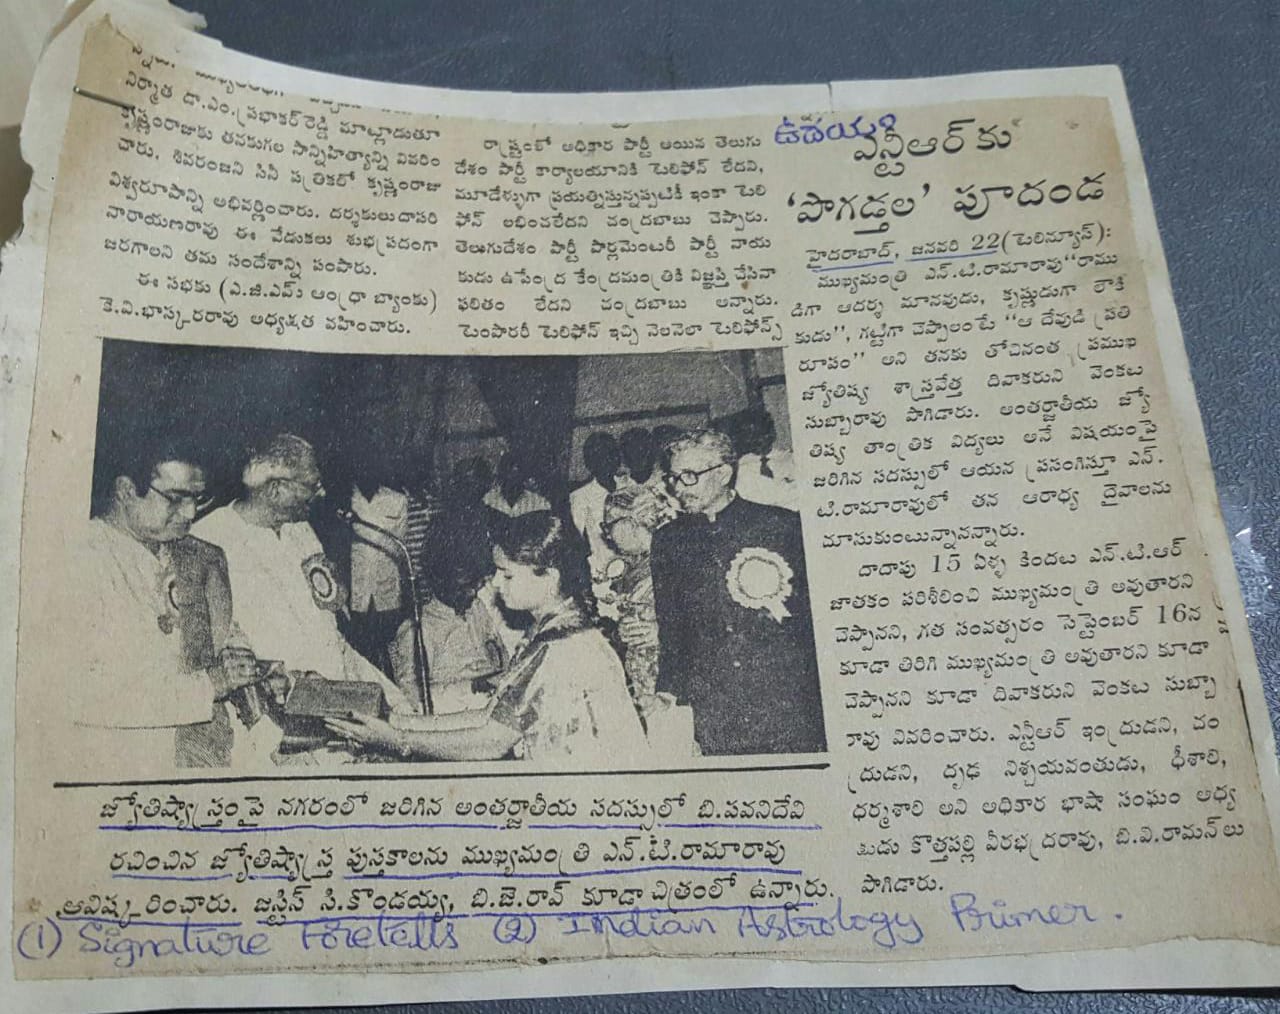 నిర్మాత డా.ఎం.ప్రభాకర్‌రెడ్డి మాట్లాడుతూ
కృష్ణంరాజుకు తనకుగల సాన్నిహిత్యాన్ని వివరిం
చారు. శివరంజని సినీ పత్రికలో కృష్ణంరాజు
విశ్వరూపాన్ని అభివర్ణించారు. దర్శకులు దాసరి
నారాయణరావు ఈ వేడుకలు శుభప్రదంగా
జరగాలని తమ సందేశాన్ని పంపారు.
ఈ సభకు (ఎ.జి.ఎమ్ ఆంధ్రా బ్యాంకు)
కె.వి.భాస్కరరావు అధ్యక్షత వహించారు.
రాష్ట్రంలో అధికార పార్టీ అయిన తెలుగు
దేశం పార్టీ కార్యాలయానికి టెలిఫోన్ లేదని,
మూడేళ్ళుగా ప్రయత్నిస్తున్నప్పటికీ ఇంకా టెలి
ఫోన్ లభించలేదని చంద్రబాబు చెప్పారు.
తెలుగుదేశం పార్టీ పార్లమెంటరీ పార్టీ నాయ
కుడు ఉపేంద్ర కేంద్రమంత్రికి విజ్ఞప్తి చేసినా
ఫలితం లేదని చంద్రబాబు అన్నారు.
టెంపరరీ టెలిఫోన్ ఇచ్చి నెలనెలా టెలిఫోన్స్
ఉదయం
ఎన్టీఆర్‌కు
'పొగడ్తల' పూదండ
హైదరాబాద్, జనవరి 22(టెలిన్యూస్):
ముఖ్యమంత్రి ఎన్.టి.రామారావు "రాము
డిగా ఆదర్శ మానవుడు, కృష్ణుడుగా లౌకి
కుడు", గట్టిగా చెప్పాలంటే "ఆ దేవుడి ప్రతి
రూపం" అని తనకు తోచినంత ప్రముఖ
జ్యోతిష్య శాస్త్రవేత్త దివాకరుని వెంకట
సుబ్బారావు పొగిడారు. అంతర్జాతీయ జ్యో
తిష్య తాంత్రిక విద్యలు అనే విషయంపై
జరిగిన సదస్సులో ఆయన ప్రసంగిస్తూ ఎన్.
టి.రామారావులో తన ఆరాధ్య దైవాలను
చూసుకుంటున్నానన్నారు.
దాదాపు 15 ఏళ్ళ కిందట ఎన్.టి.ఆర్
జాతకం పరిశీలించి ముఖ్యమంత్రి అవుతారని
చెప్పానని, గత సంవత్సరం సెప్టెంబర్ 16న
కూడా తిరిగి ముఖ్యమంత్రి అవుతారని కూడా
చెప్పానని కూడా దివాకరుని వెంకట సుబ్బా
రావు వివరించారు. ఎన్టీఆర్ ఇంద్రుడని, చం
ద్రుడని, దృఢ నిశ్చయవంతుడు, ధీశాలి,
ధర్మశాలి అని అధికార భాషా సంఘం అధ్య
క్షుడు కొత్తపల్లి వీరభద్రరావు, బి.వి.రామన్‌లు
పొగిడారు.
జ్యోతిష్శాస్త్రంపై నగరంలో జరిగిన అంతర్జాతీయ సదస్సులో బి.పవనిదేవి
రచించిన జ్యోతిష్శాస్త్ర పుస్తకాలను ముఖ్యమంత్రి ఎన్.టి.రామారావు
ఆవిష్కరించారు. జస్టిస్ సి.కొండయ్య, బి.జె.రావ్ కూడా చిత్రంలో ఉన్నారు.
(1) Signature Foretells (2) Indian Astrology Primer.